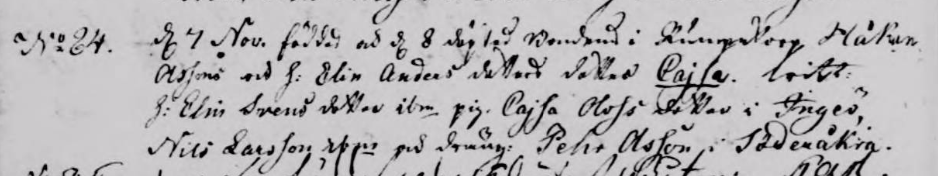 No 24. d 7 Nov. föddes och d 8 döptes Bondens i Rumpetorp Håkan
Assons och h: Elin Anders dotters dotter Cajsa. Witt:
h: Elin Svens dotter ibm pig. Cajsa Olofs dotter i Ingeö,
Nils Larsson ibm och dräng: Pehr Asson i Söderåkra.